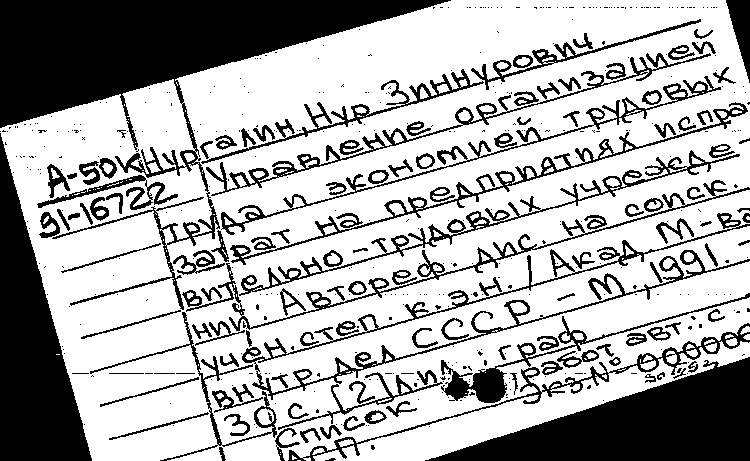 А-50К Нургалин, Нур Зиннурович.
91-16722 Управление организацией
труда и экономией трудовых
затрат на предприятиях испра
вительно-трудовых учрежде-
ний: Автореф. дис. на соиск.
учен. степ. к.э.н. / Акад. М-ва
внутр. дел СССР. - М., 1991. -
30 с., [2] л. ил.: граф.
Список работ авт.: с
ДСП. Экз. №